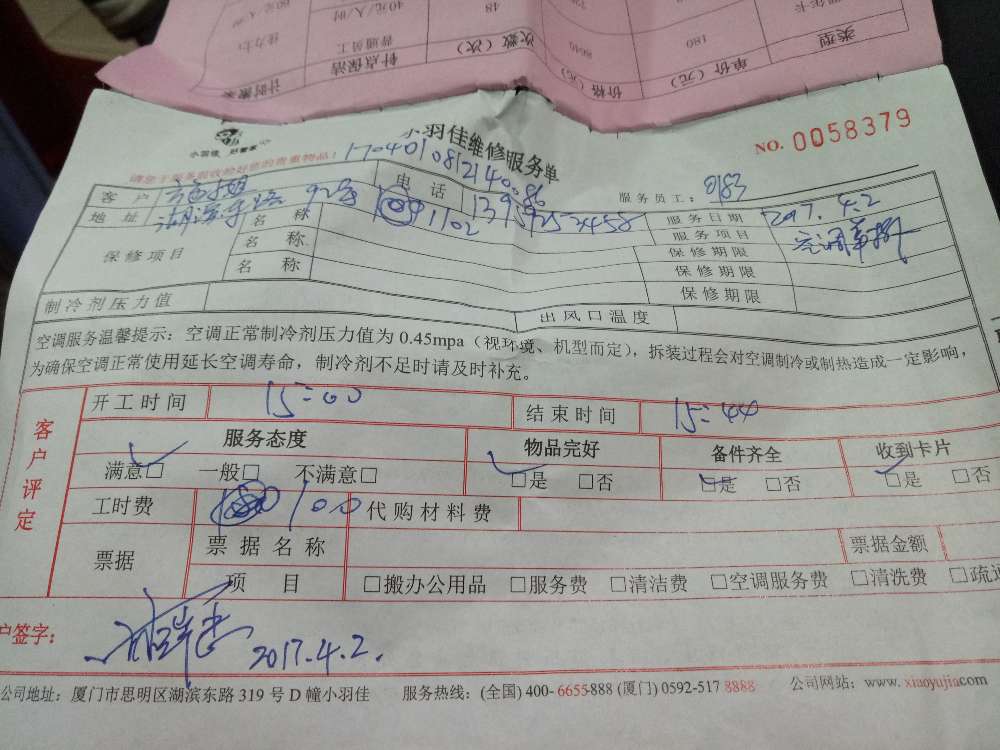 类型 单价（元） 价格（元） 次数（次） 针点保洁 计时搬家
180 8640 48 普通员工
40元/人/时
小羽佳 好管家
小羽佳维修服务单
NO. 0058379
请您于服务前收检好您的贵重物品！
1704010812140.86
客户 电话 服务员工：9183
地址 湖滨东路 92号 1102 服务日期 2017.4.2
保修项目 名称 服务项目 空调
名称 保修期限
名称 保修期限
保修期限
制冷剂压力值 出风口温度
空调服务温馨提示：空调正常制冷剂压力值为 0.45mpa（视环境、机型而定），拆装过程会对空调制冷或制热造成一定影响，
为确保空调正常使用延长空调寿命，制冷剂不足时请及时补充。
客户评定
开工时间 15:00 结束时间 15:44
服务态度 物品完好 备件齐全 收到卡片
满意□ 一般□ 不满意□ □是 □否 □是 □否 □是 □否
工时费 100 代购材料费
票据 票据名称 票据金额
项目 □搬办公用品 □服务费 □清洁费 □空调服务费 □清洗费 □疏通
户签字：
2017.4.2.
公司地址：厦门市思明区湖滨东路 319 号 D 幢小羽佳 服务热线：(全国) 400-6655-888 (厦门) 0592-517 8888 公司网站：www.xiaoyujia.com